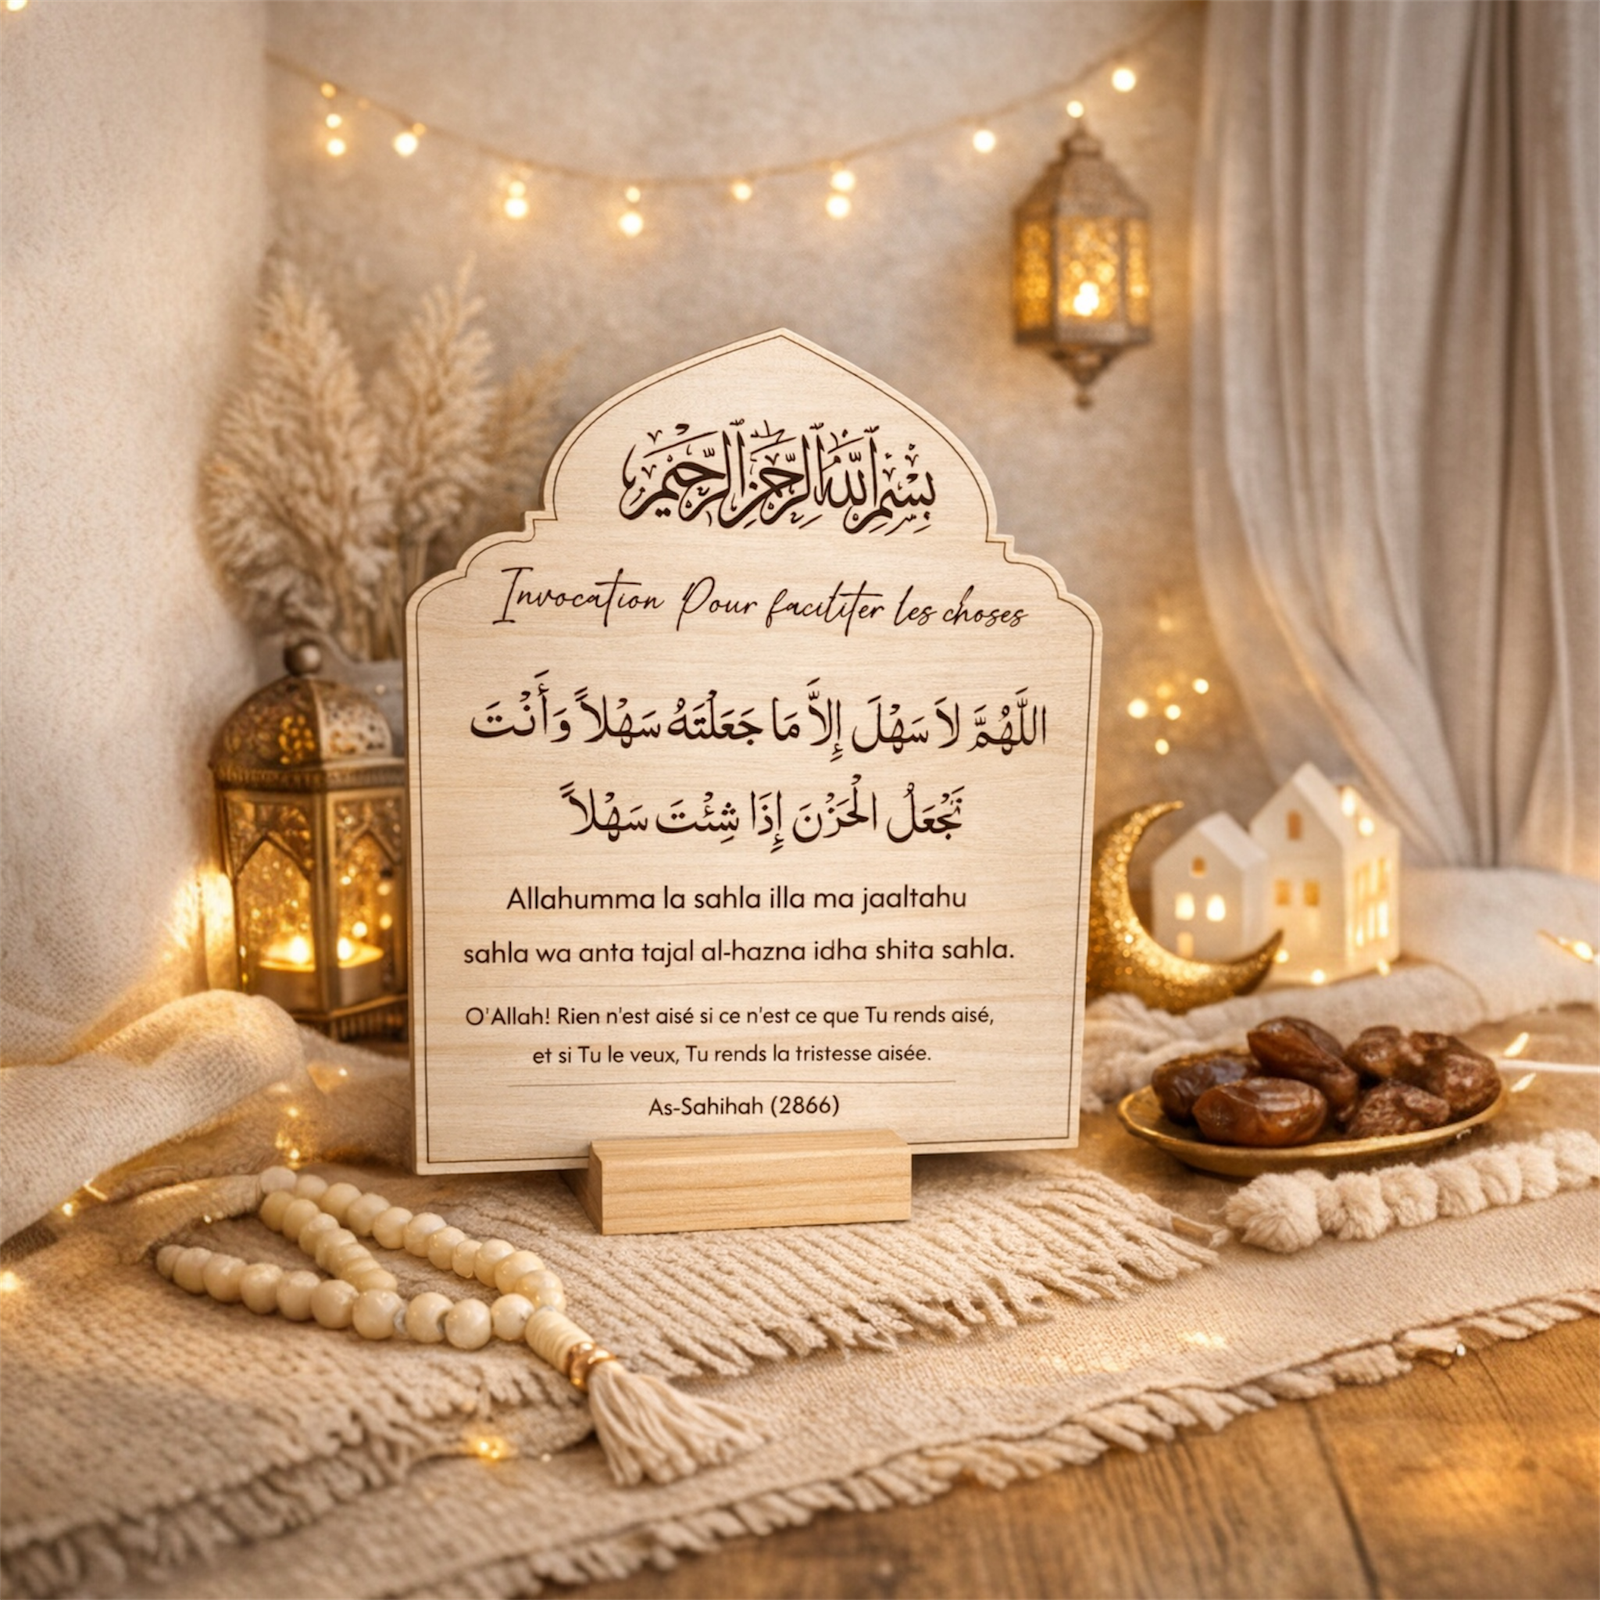 بِسْمِ اللَّهِ الرَّحْمَنِ الرَّحِيمِ
Invocation Pour faciliter les choses
اللَّهُمَّ لاَ سَهْلَ إِلاَّ مَا جَعَلْتَهُ سَهْلاً وَأَنْتَ
تَجْعَلُ الْحَزْنَ إِذَا شِئْتَ سَهْلاً
Allahumma la sahla illa ma jaaltahu
sahla wa anta tajal al-hazna idha shita sahla.
O'Allah! Rien n'est aisé si ce n'est ce que Tu rends aisé,
et si Tu le veux, Tu rends la tristesse aisée.
As-Sahihah (2866)